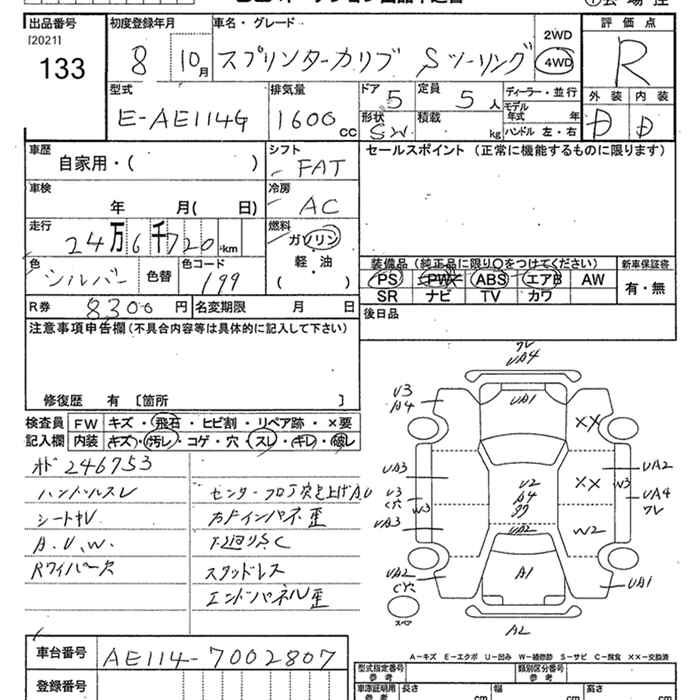 出品番号 初度登録年月 車名・グレード 2WD 評価点
[2021] 133 8 10月 スプリンターカリブ Sツーリング 4WD R
型式 排気量 ドア 5 定員 5人 ディーラー・並行 外装 内装
E-AE114G 1600cc 形状 SW 積載 kg モデル年式 年 D D
ハンドル 左・右
車歴 シフト セールスポイント (正常に機能するものに限ります)
自家用・( ) FAT
車検 冷房
年 月( 日) AC
走行 燃料
24万6千720km ガソリン
軽・油
( )
色 シルバー 色替 色コード 199
装備品 (純正品に限り○をつけてください) 新車保証書
PS PW ABS エアB AW 有・無
SR ナビ TV カワ
R券 8300円 名変期限 月 日 後日品
注意事項申告欄 (不具合内容等は具体的に記入して下さい)
修復歴 有 [箇所 ]
検査員 FW キズ・飛石・ヒビ割・リペア跡・×要
記入欄 内装 キズ・汚レ・コゲ・穴・スレ・キレ・破レ
246753
ハンドルスレ
シートキレ
A.U.W.
Rワイパー欠
スタッドレス
エンドパネル歪
ワレ
UA4
U3
A4
UA1
××
UA3
U3
W3
UA3
U2
A4
××
W3
UA2
UA4
ワレ
UA2
W2
UA2
A1
UA1
スペア
A-キズ E-エクボ U-凹み W-補修跡 S-サビ C-腐食 ××-交換済
車台番号 AE114-7002807
型式指定番号 参考 類別区分番号 参考
登録番号 車庫証明用 参考 長さ cm 幅 cm 高さ cm